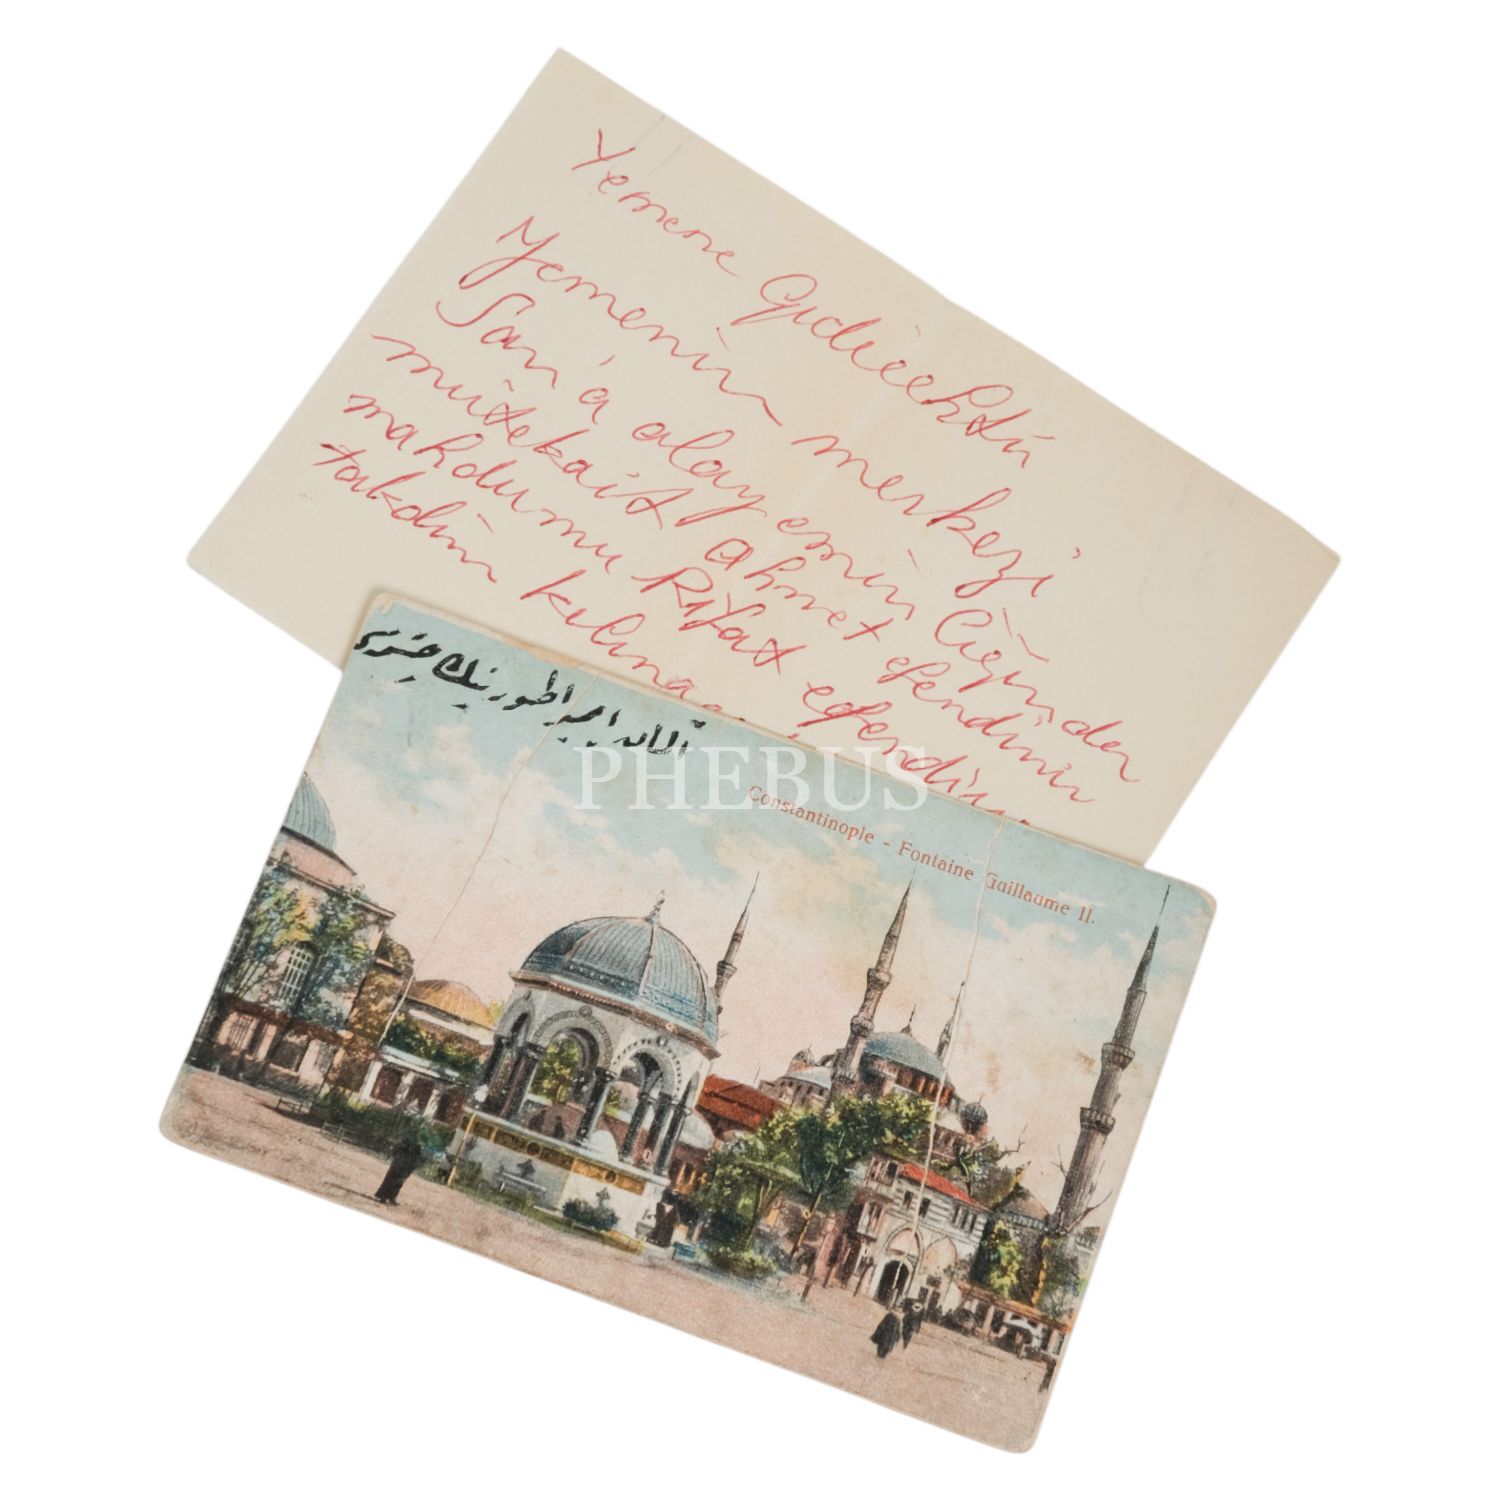 Yemene Gidecektir
Yemenin merkezi
San'a alay emin liğinden
mütekait ahmet efendinin
mahdumu Rifat efendiye
takdim kılına
چشمه‌سى
PHEBUS
Constantinople - Fontaine Guillaume II.